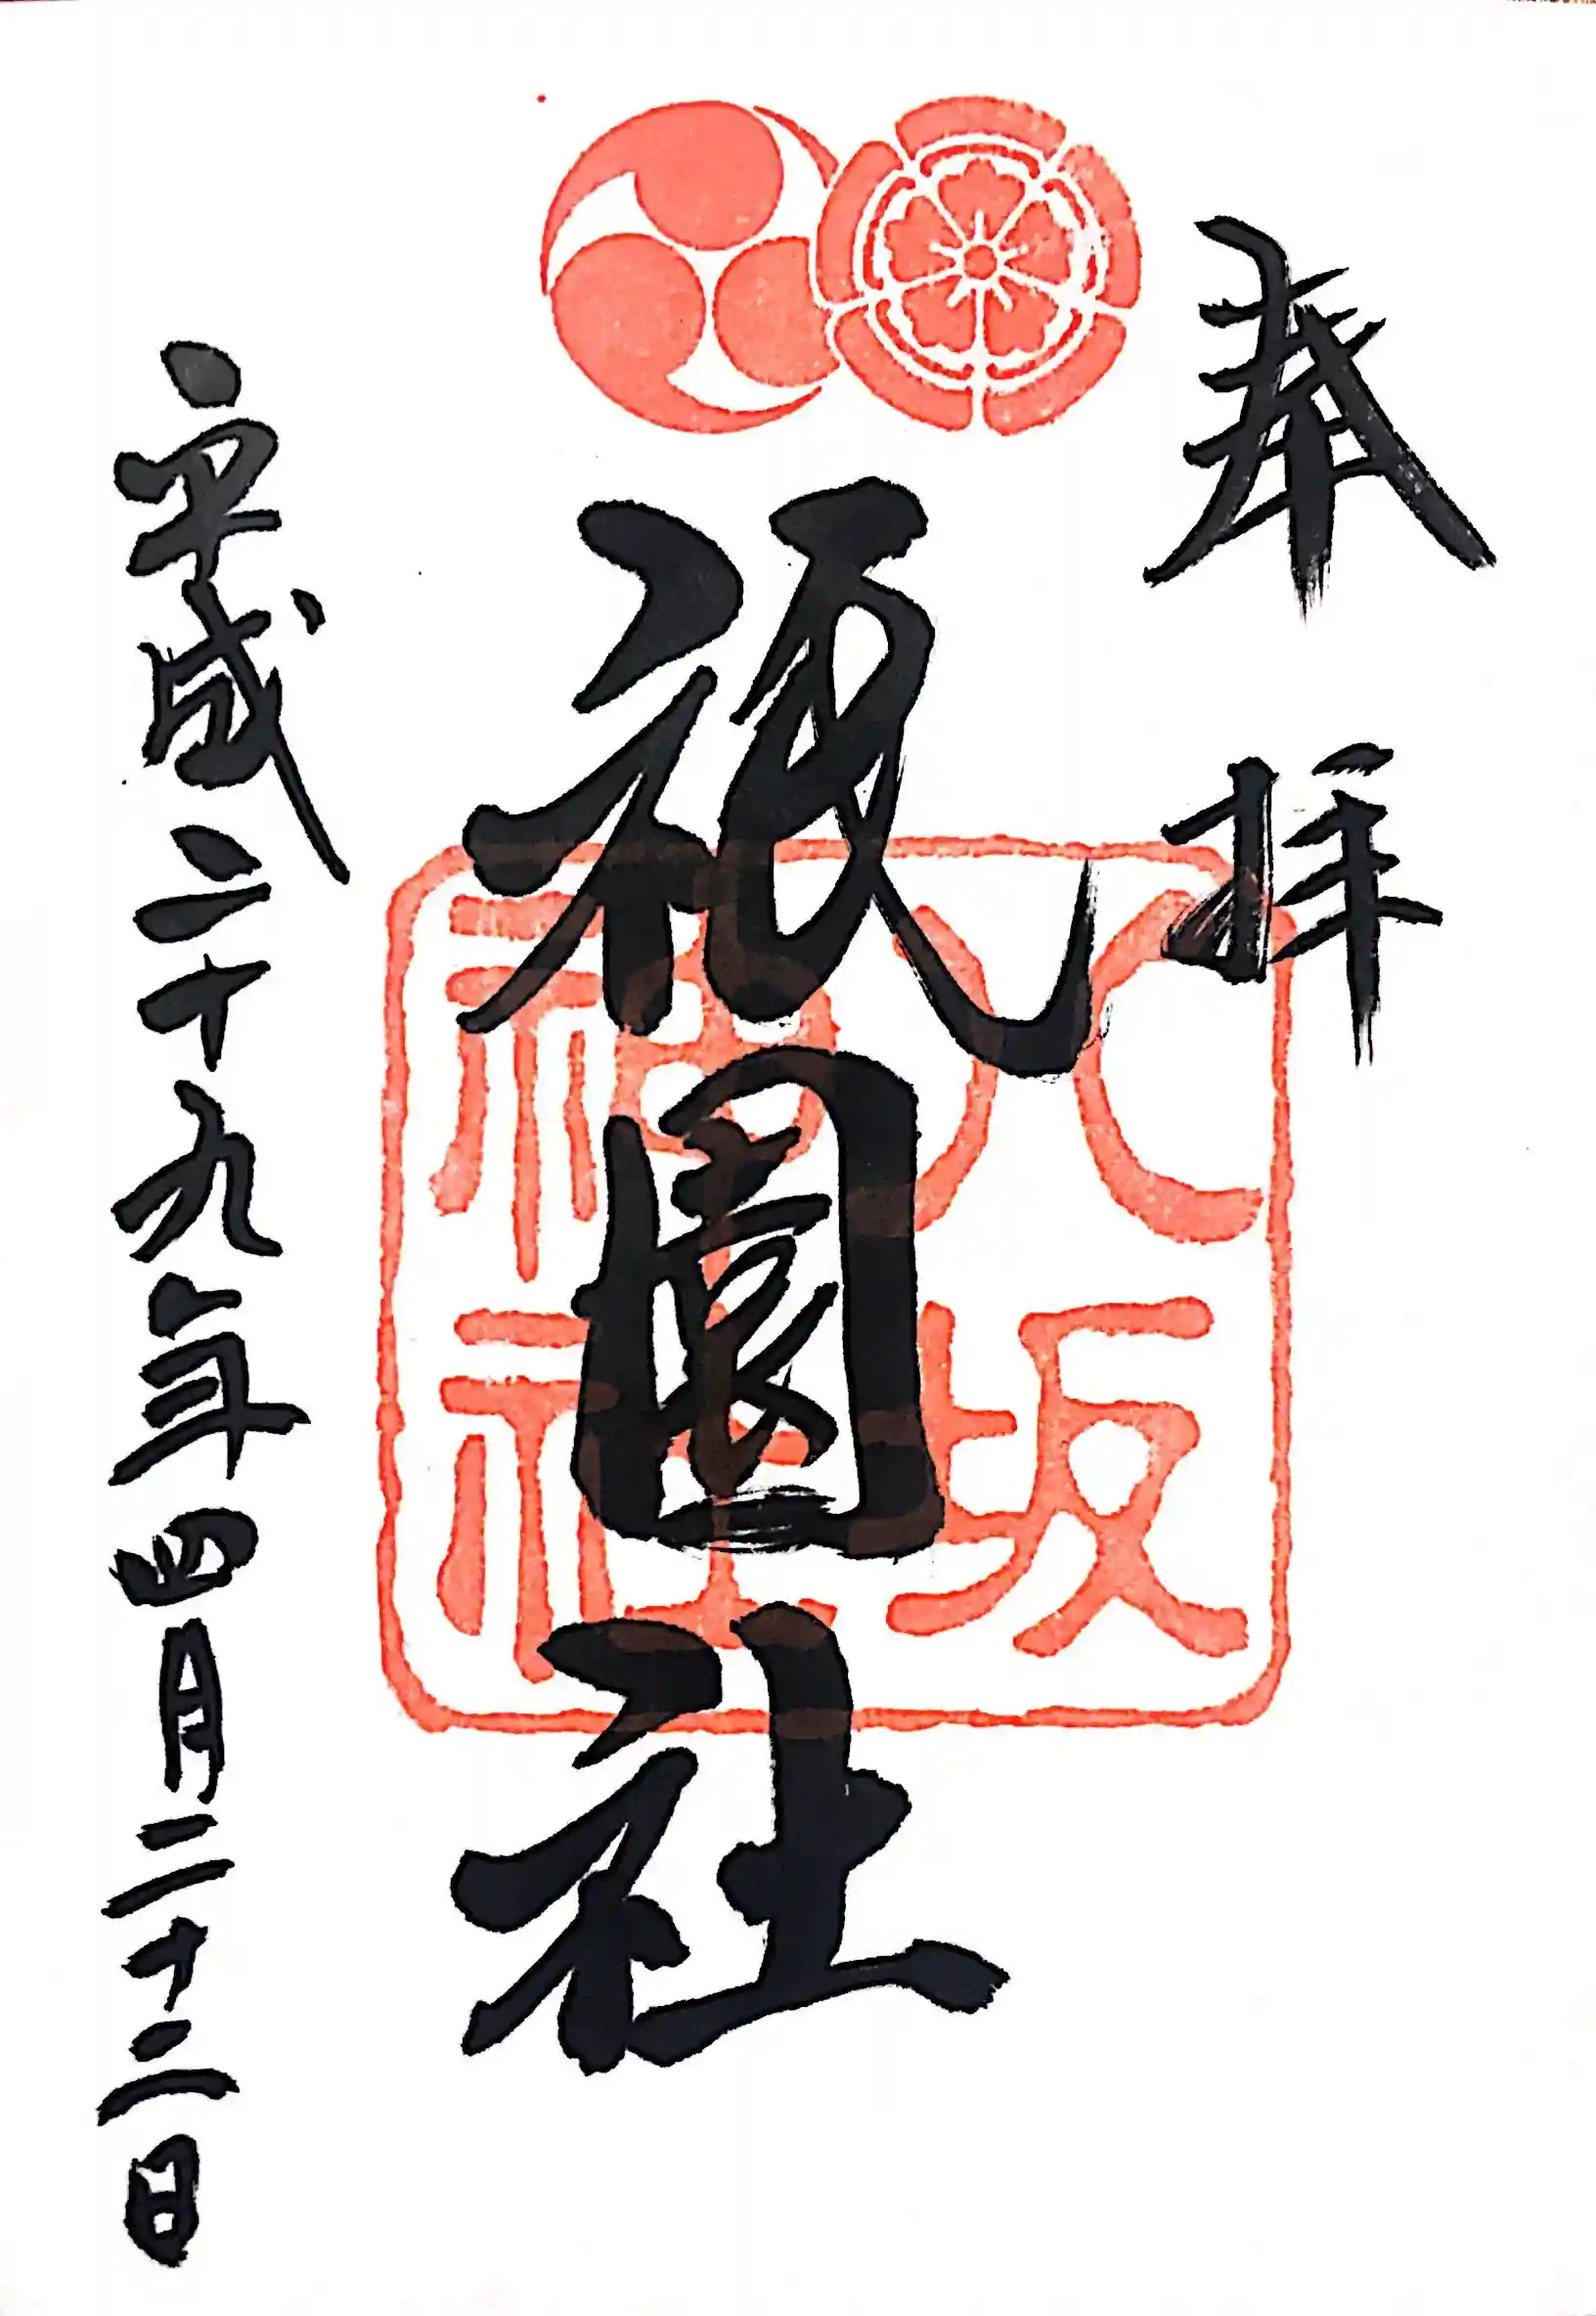 奉拝
祇園社
八坂
神社
平成二十九年四月二十二日